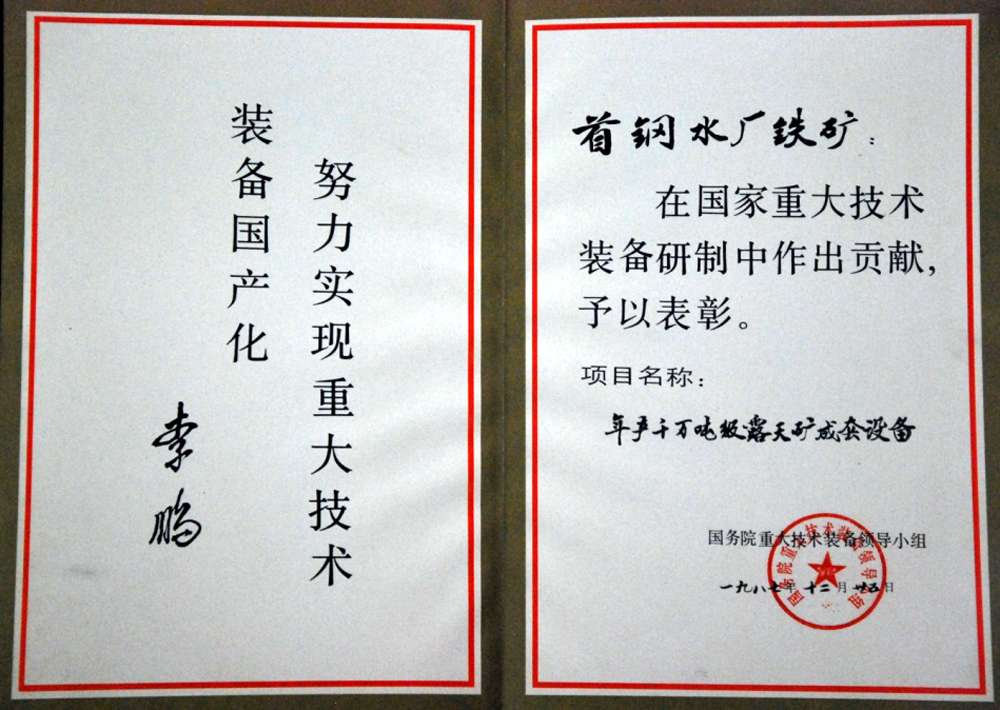 努力实现重大技术
装备国产化
李鹏
首钢水厂铁矿：
在国家重大技术
装备研制中作出贡献，
予以表彰。
项目名称：
年产千万吨级露天矿成套设备
国务院重大技术装备领导小组
一九八七年十二月廿五日
国务院重大技术装备领导小组